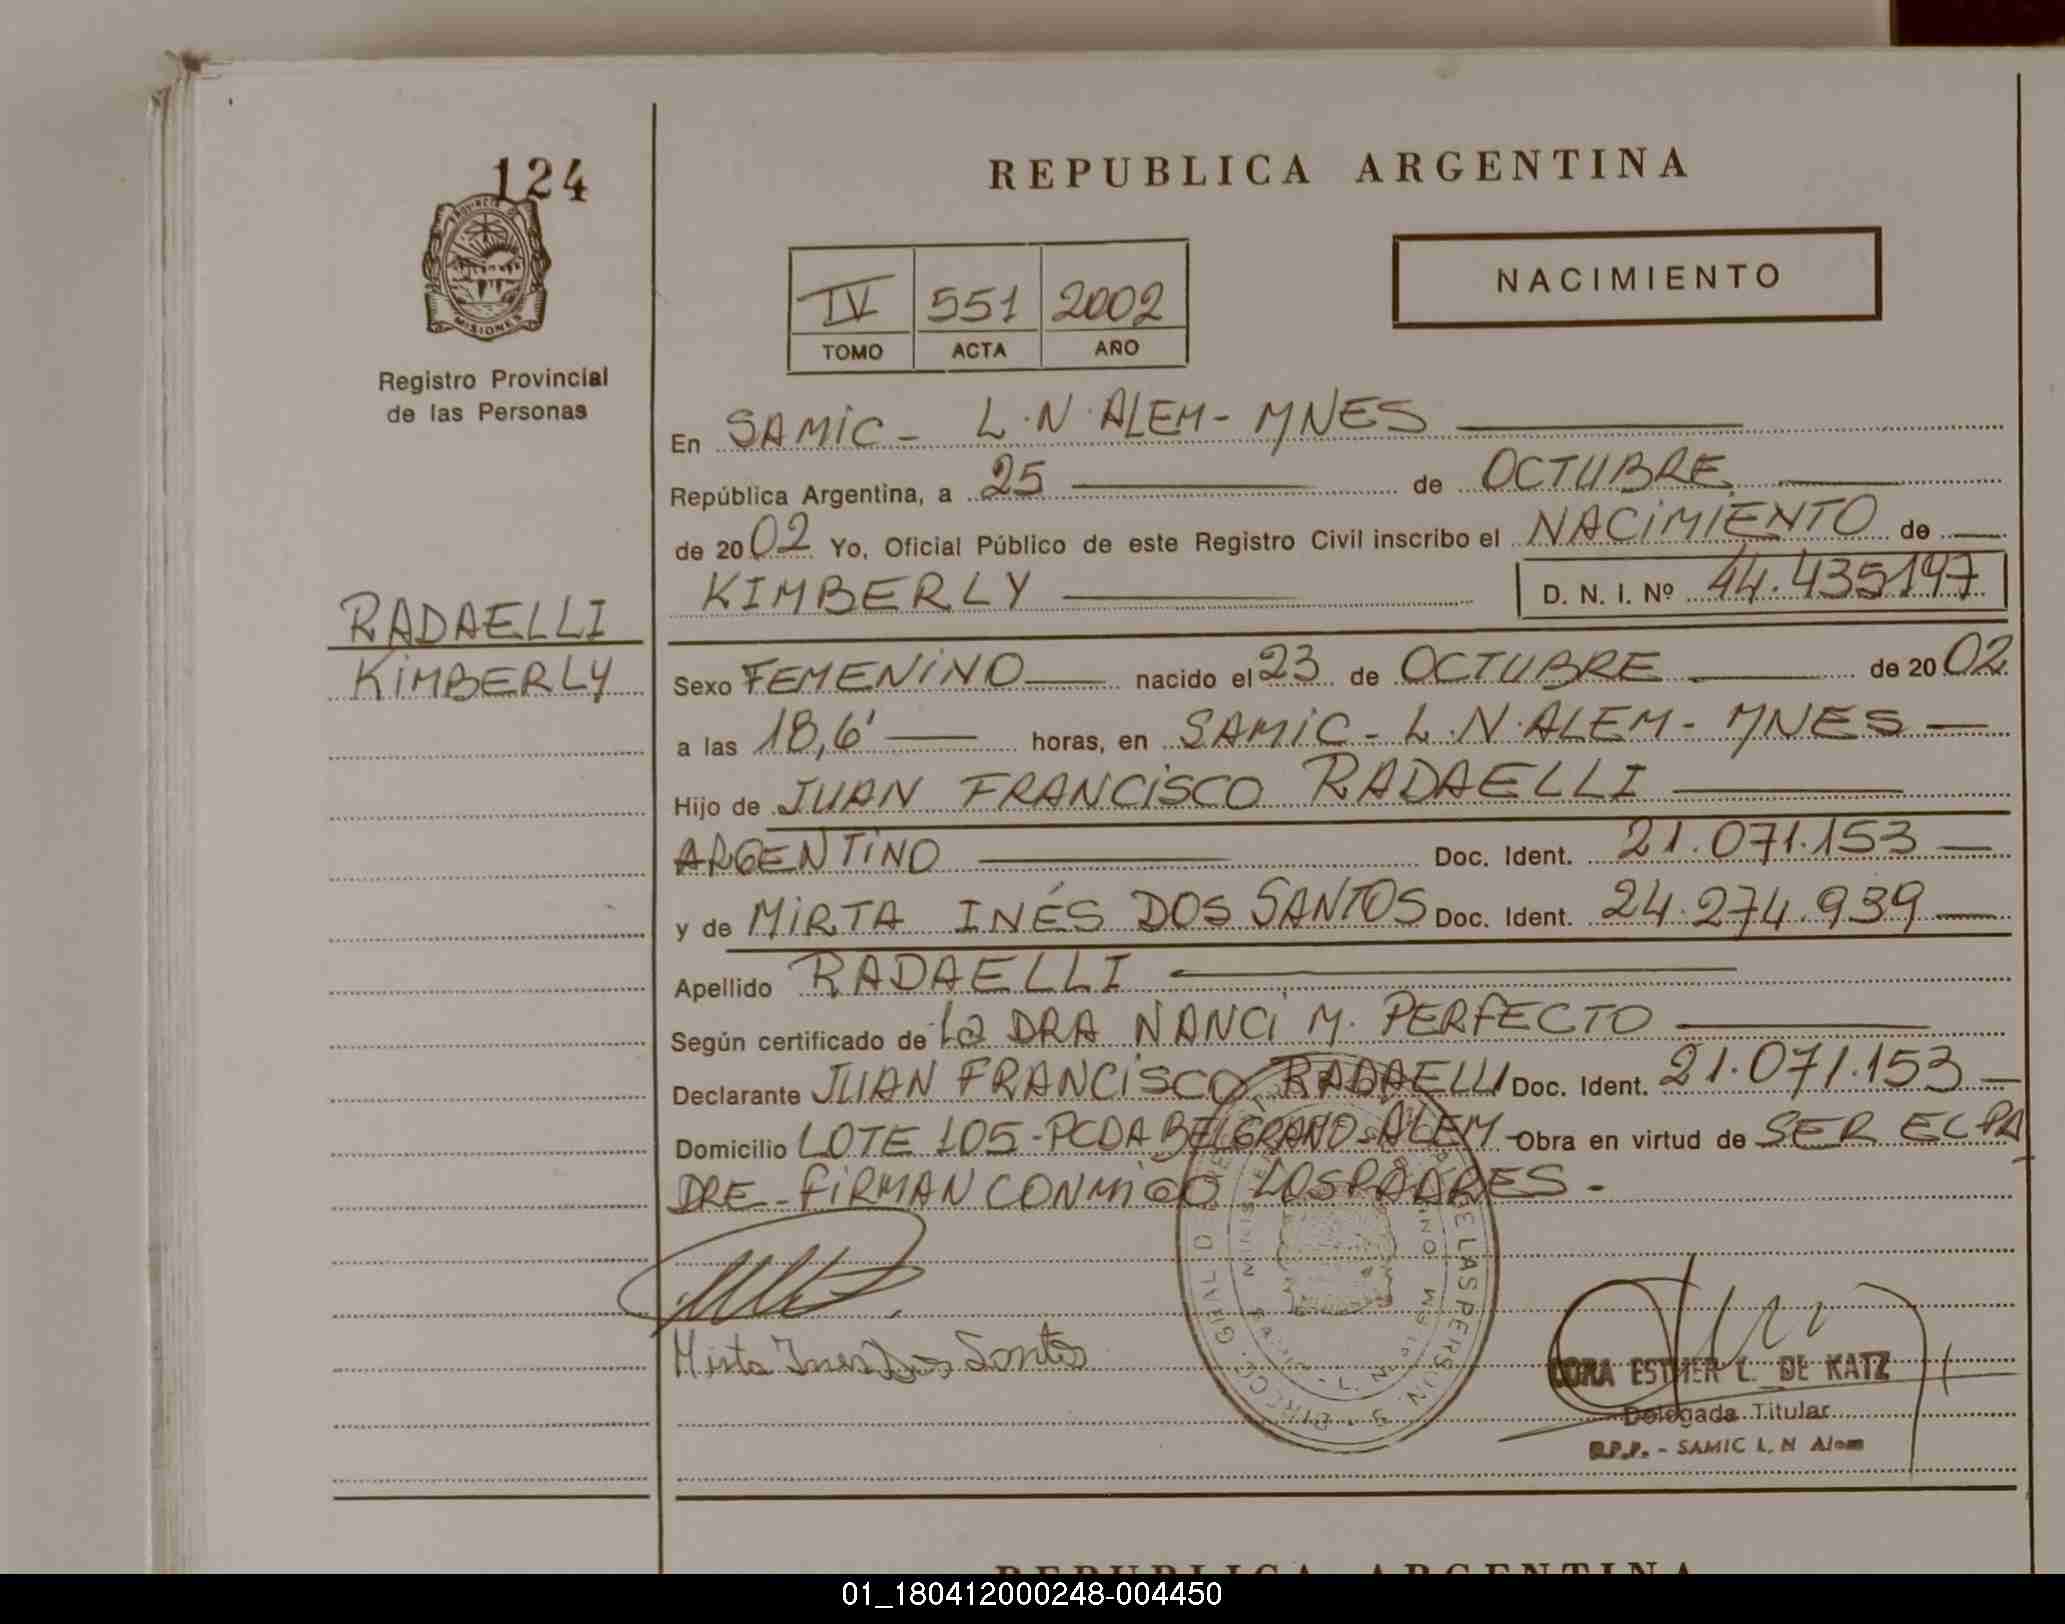 124
PROVINCIA DE
MISIONES
Registro Provincial
de las Personas
RADAELLI
KIMBERLY
REPUBLICA ARGENTINA
NACIMIENTO
IV 551 2002
TOMO ACTA AÑO
En SAMIC - L.N. ALEM - MNES
República Argentina, a 25 de OCTUBRE
de 2002 Yo, Oficial Público de este Registro Civil inscribo el NACIMIENTO de
KIMBERLY D. N. I. Nº 44.435197
Sexo FEMENINO nacido el 23 de OCTUBRE de 2002
a las 18,6' horas, en SAMIC - L.N. ALEM - MNES
Hijo de JUAN FRANCISCO RADAELLI
ARGENTINO Doc. Ident. 21.071.153
y de MIRTA INÉS DOS SANTOS Doc. Ident. 24.274.939
Apellido RADAELLI
Según certificado de La DRA NANCI M. PERFECTO
Declarante JUAN FRANCISCO RADAELLI Doc. Ident. 21.071.153
Domicilio LOTE 105 - PCDA BELGRANO - ALEM - Obra en virtud de SER EL PA
DRE - FIRMAN CONMIGO LOS PADRES -
Mirta Ines Dos Santos
DORA ESTHER L. DE KATZ
Delegada Titular
R.P.P. - SAMIC L. N Alem
REPUBLICA ARGENTINA
01_180412000248-004450